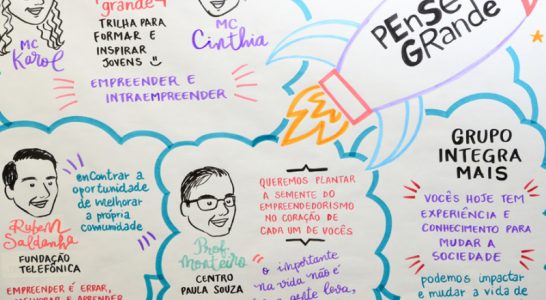 grande
TRILHA PARA
FORMAR E
INSPIRAR
JOVENS
EMPREENDER E
INTRAEMPREENDER
MC
Karol
MC
Cinthia
PENSE
GRANDE
enContrar a
oportunidade
de melhorar
a própria
comunidade
Ruben
Saldanha
FUNDAÇÃO
TELEFÔNICA
EMPREENDER É ERRAR,
MELHORAR E APRENDER
Prof.
Monteiro
CENTRO
PAULA SOUZA
QUEREMOS PLANTAR
A SEMENTE DO
EMPREENDEDORISMO
NO CORAÇÃO DE
CADA UM DE VOCÊS
o importante
na vida não é
gente leva,
GRUPO
INTEGRA
MAIS
VOCÊS HOJE TEM
EXPERIÊNCIA E
CONHECIMENTO PARA
MUDAR A
SOCIEDADE
podemos impactar
e mudar a vida de